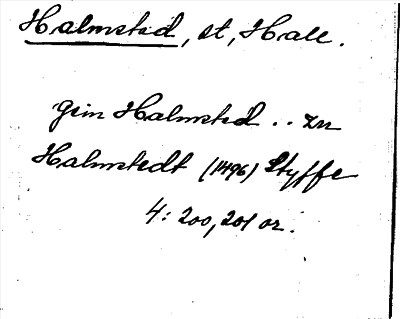 Halmstad, st, Hall.
gein Halmsted .. zu
Halmstedt (1496) Styffe
4: 200, 201 or.